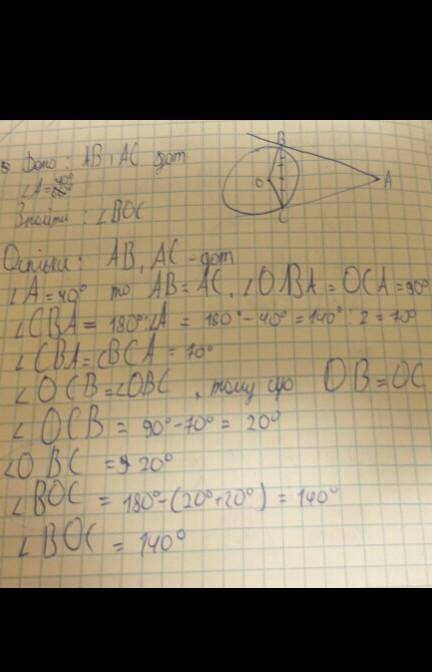 Дано: AB і AC дот
B
∠A=40°
O
A
Знайти: ∠BOC
C
Оскільки: AB, AC - дот
∠A=40° то AB=AC, ∠OBA = OCA = 90°
∠CBA = 180°-∠A = 180°-40° = 140° : 2 = 70°
∠CBA=∠BCA = 70°
∠OCB=∠OBC, тому що OB=OC
∠OCB = 90°-70° = 20°
∠OBC = 20°
∠BOC = 180°-(20°+20°) = 140°
∠BOC = 140°